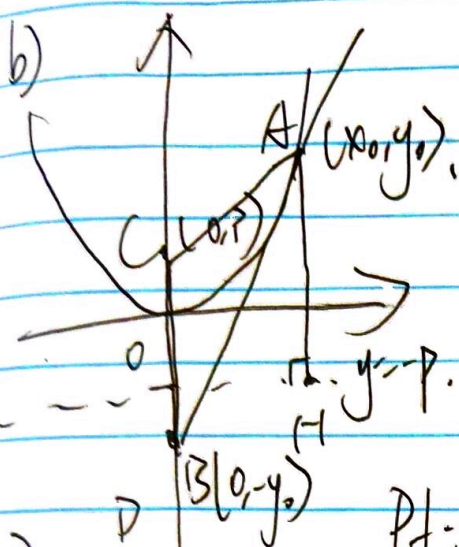 b)
A (x₀,y₀).
C (0,P)
O
y=-P.
H
B(0,-y₀)
P Pf: